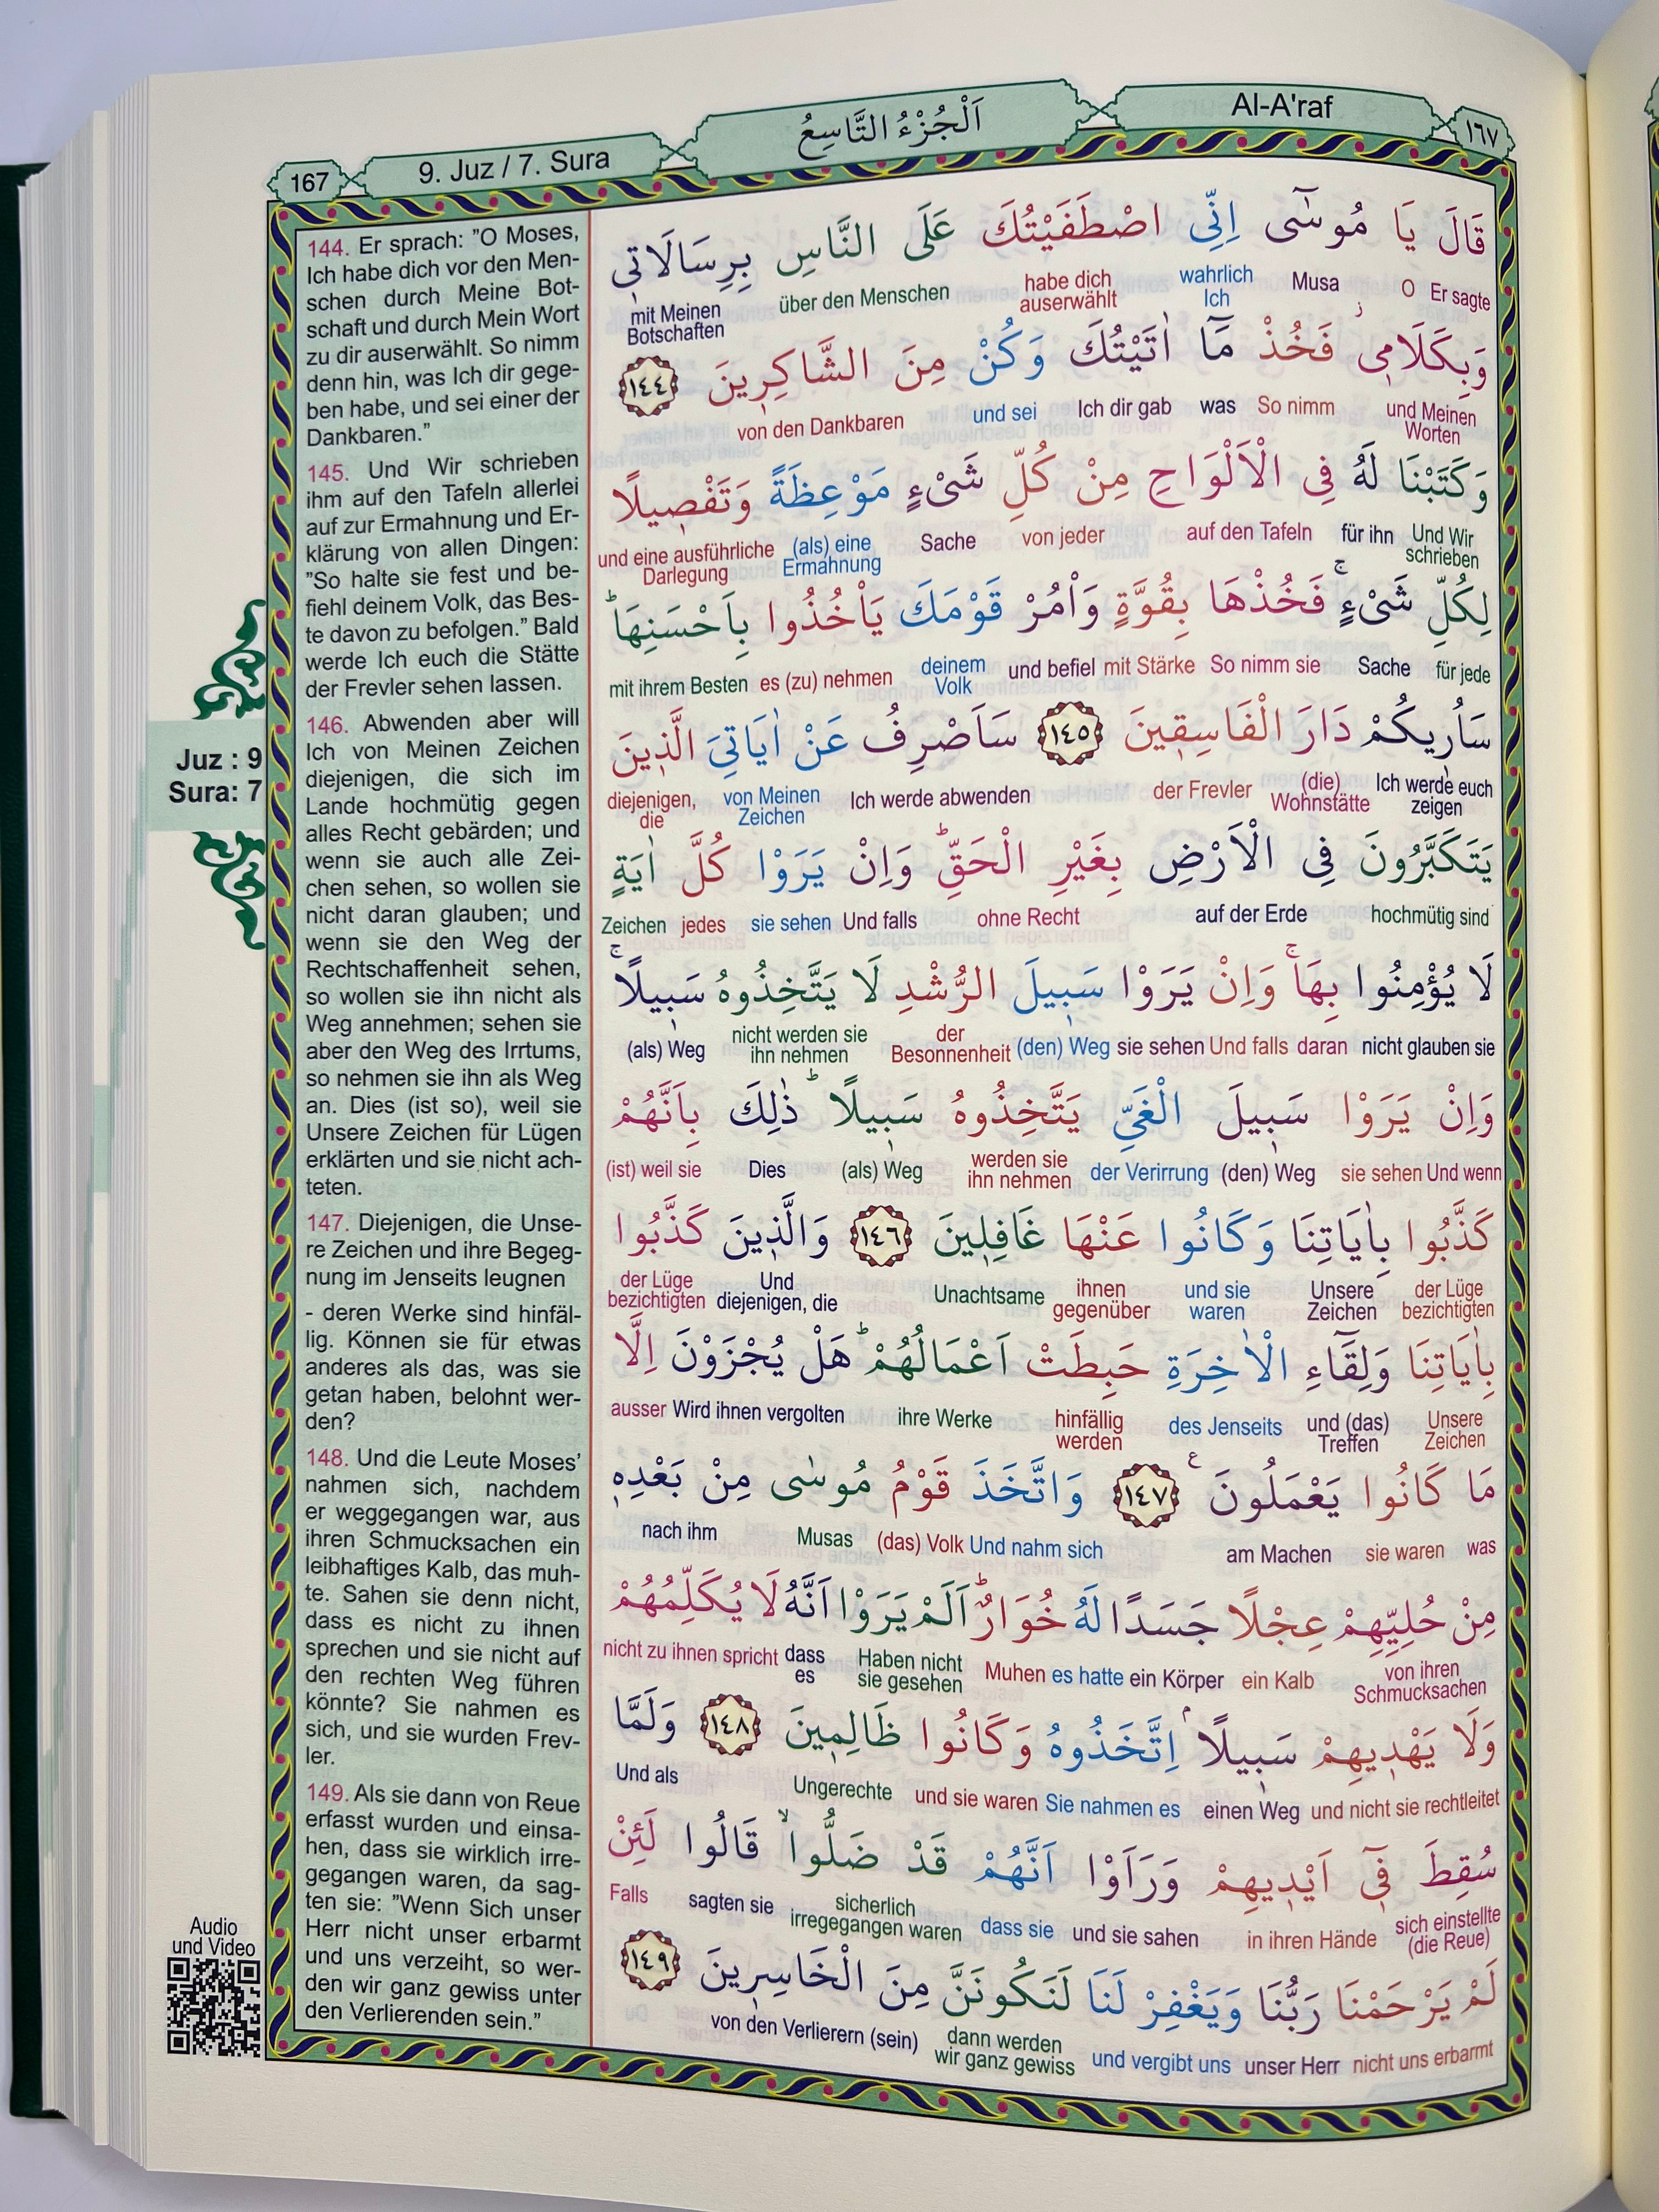 167
9. Juz / 7. Sura
اَلْجُزْءُ التَّاسِعُ
Al-A'raf
١٦٧
144. Er sprach: ”O Moses,
Ich habe dich vor den Men-
schen durch Meine Bot-
schaft und durch Mein Wort
zu dir auserwählt. So nimm
denn hin, was Ich dir gege-
ben habe, und sei einer der
Dankbaren.”
145. Und Wir schrieben
ihm auf den Tafeln allerlei
auf zur Ermahnung und Er-
klärung von allen Dingen:
”So halte sie fest und be-
fiehl deinem Volk, das Bes-
te davon zu befolgen.” Bald
werde Ich euch die Stätte
der Frevler sehen lassen.
146. Abwenden aber will
Ich von Meinen Zeichen
diejenigen, die sich im
Lande hochmütig gegen
alles Recht gebärden; und
wenn sie auch alle Zei-
chen sehen, so wollen sie
nicht daran glauben; und
wenn sie den Weg der
Rechtschaffenheit sehen,
so wollen sie ihn nicht als
Weg annehmen; sehen sie
aber den Weg des Irrtums,
so nehmen sie ihn als Weg
an. Dies (ist so), weil sie
Unsere Zeichen für Lügen
erklärten und sie nicht ach-
teten.
147. Diejenigen, die Unse-
re Zeichen und ihre Begeg-
nung im Jenseits leugnen
- deren Werke sind hinfäl-
lig. Können sie für etwas
anderes als das, was sie
getan haben, belohnt wer-
den?
148. Und die Leute Moses’
nahmen sich, nachdem
er weggegangen war, aus
ihren Schmucksachen ein
leibhaftiges Kalb, das muh-
te. Sahen sie denn nicht,
dass es nicht zu ihnen
sprechen und sie nicht auf
den rechten Weg führen
könnte? Sie nahmen es
sich, und sie wurden Frev-
ler.
149. Als sie dann von Reue
erfasst wurden und einsa-
hen, dass sie wirklich irre-
gegangen waren, da sag-
ten sie: ”Wenn Sich unser
Herr nicht unser erbarmt
und uns verzeiht, so wer-
den wir ganz gewiss unter
den Verlierenden sein.”
قَالَ يَا مُوسٰٓى اِنِّى اصْطَفَيْتُكَ عَلَى النَّاسِ بِرِسَالَاتٖى
Er sagte O Musa wahrlich Ich habe dich auserwählt über den Menschen mit Meinen Botschaften
وَبِكَلَامٖىۘ فَخُذْ مَٓا اٰتَيْتُكَ وَكُنْ مِنَ الشَّاكِرٖينَ ﴿١٤٤﴾
und Meinen Worten So nimm was Ich dir gab und sei von den Dankbaren
وَكَتَبْنَا لَهُ فِى الْاَلْوَاحِ مِنْ كُلِّ شَىْءٍ مَوْعِظَةً وَتَفْصٖيلًا
Und Wir schrieben für ihn auf den Tafeln von jeder Sache (als) eine Ermahnung und eine ausführliche Darlegung
لِكُلِّ شَىْءٍۚ فَخُذْهَا بِقُوَّةٍ وَاْمُرْ قَوْمَكَ يَاْخُذُوا بِاَحْسَنِهَاؕ
für jede Sache So nimm sie mit Stärke und befiel deinem Volk es (zu) nehmen mit ihrem Besten
سَاُرٖيكُمْ دَارَ الْفَاسِقٖينَ ﴿١٤٥﴾ سَاَصْرِفُ عَنْ اٰيَاتِىَ الَّذٖينَ
Ich werde euch zeigen (die) Wohnstätte der Frevler Ich werde abwenden von Meinen Zeichen diejenigen, die
يَتَكَبَّرُونَ فِى الْاَرْضِ بِغَيْرِ الْحَقِّؕ وَاِنْ يَرَوْا كُلَّ اٰيَةٍ
hochmütig sind auf der Erde ohne Recht Und falls sie sehen jedes Zeichen
لَا يُؤْمِنُوا بِهَاۚ وَاِنْ يَرَوْا سَبٖيلَ الرُّشْدِ لَا يَتَّخِذُوهُ سَبٖيلًاۚ
nicht glauben sie daran Und falls sie sehen (den) Weg der Besonnenheit nicht werden sie ihn nehmen (als) Weg
وَاِنْ يَرَوْا سَبٖيلَ الْغَىِّ يَتَّخِذُوهُ سَبٖيلًاؕ ذٰلِكَ بِاَنَّهُمْ
Und wenn sie sehen (den) Weg der Verirrung werden sie ihn nehmen (als) Weg Dies (ist) weil sie
كَذَّبُوا بِاٰيَاتِنَا وَكَانُوا عَنْهَا غَافِلٖينَ ﴿١٤٦﴾ وَالَّذٖينَ كَذَّبُوا
der Lüge bezichtigten Unsere Zeichen und sie waren ihnen gegenüber Unachtsame Und diejenigen, die der Lüge bezichtigten
بِاٰيَاتِنَا وَلِقَٓاءِ الْاٰخِرَةِ حَبِطَتْ اَعْمَالُهُمْؕ هَلْ يُجْزَوْنَ اِلَّا
Unsere Zeichen und (das) Treffen des Jenseits hinfällig werden ihre Werke Wird ihnen vergolten ausser
مَا كَانُوا يَعْمَلُونَ ࣖ ﴿١٤٧﴾ وَاتَّخَذَ قَوْمُ مُوسٰى مِنْ بَعْدِهٖ
was sie waren am Machen Und nahm sich (das) Volk Musas nach ihm
مِنْ حُلِيِّهِمْ عِجْلًا جَسَدًا لَهُ خُوَارٌؕ اَلَمْ يَرَوْا اَنَّهُ لَا يُكَلِّمُهُمْ
von ihren Schmucksachen ein Kalb ein Körper es hatte Muhen Haben nicht sie gesehen dass es nicht zu ihnen spricht
وَلَا يَهْدٖيهِمْ سَبٖيلًاۢ اِتَّخَذُوهُ وَكَانُوا ظَالِمٖينَ ﴿١٤٨﴾ وَلَمَّا
und nicht sie rechtleitet einen Weg Sie nahmen es und sie waren Ungerechte Und als
سُقِطَ فٖٓى اَيْدٖيهِمْ وَرَاَوْا اَنَّهُمْ قَدْ ضَلُّواۙ قَالُوا لَئِنْ
sich einstellte (die Reue) in ihren Hände und sie sahen dass sie sicherlich irregegangen waren sagten sie Falls
لَمْ يَرْحَمْنَا رَبُّنَا وَيَغْفِرْ لَنَا لَنَكُونَنَّ مِنَ الْخَاسِرٖينَ ﴿١٤٩﴾
nicht uns erbarmt unser Herr und vergibt uns dann werden wir ganz gewiss von den Verlierern (sein)
Juz : 9
Sura: 7
Audio
und Video